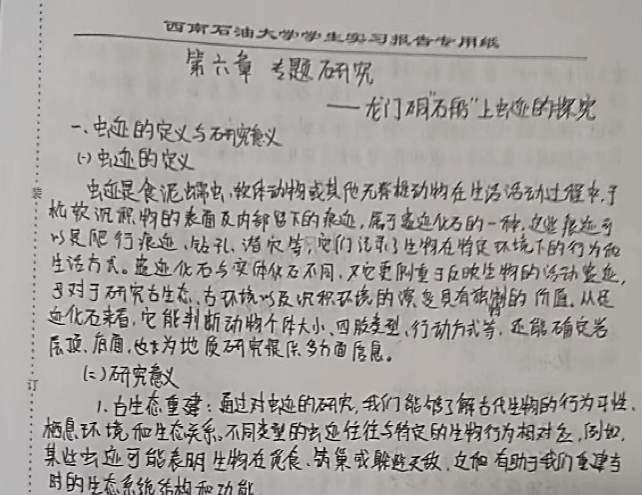 西南石油大学学生实习报告专用纸
第六章 专题研究
——龙门硐"石船"上虫迹的探究
一、虫迹的定义与研究意义
(一)虫迹的定义
虫迹是食泥蠕虫、软体动物或其他无脊椎动物在生活活动过程中,于
松软沉积物的表面及内部留下的痕迹,属于遗迹化石的一种,这些痕迹可
以是爬行痕迹、钻孔、潜穴等,它们记录了生物在特定环境下的行为和
生活方式。遗迹化石与实体化石不同,它更侧重于反映生物的活动遗迹,
对于研究古生态、古环境以及沉积环境的演变具有独特的价值。从遗
迹化石来看,它能判断动物个体大小、四肢类型、行动方式等,还能确定岩
层顶、底面,也为地质研究提供多方面信息。
(二)研究意义
1.古生态重建:通过对虫迹的研究,我们能够了解古代生物的行为习性、
栖息环境和生态关系。不同类型的虫迹往往与特定的生物行为相对应,例如,
某些虫迹可能表明生物在觅食、筑巢或躲避天敌,这都有助于我们重建当
时的生态系统结构和功能。
装
订